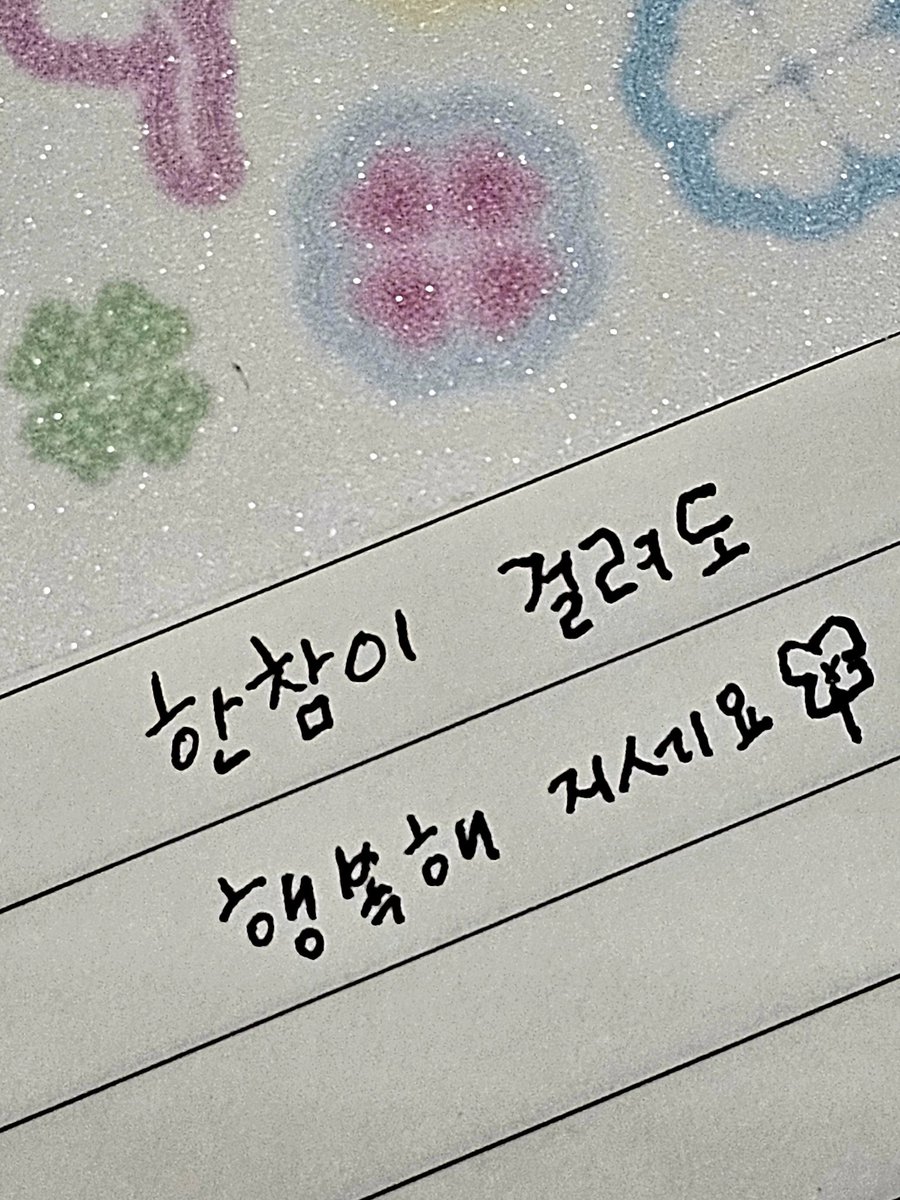 한참이 걸려도
행복해 지시리요